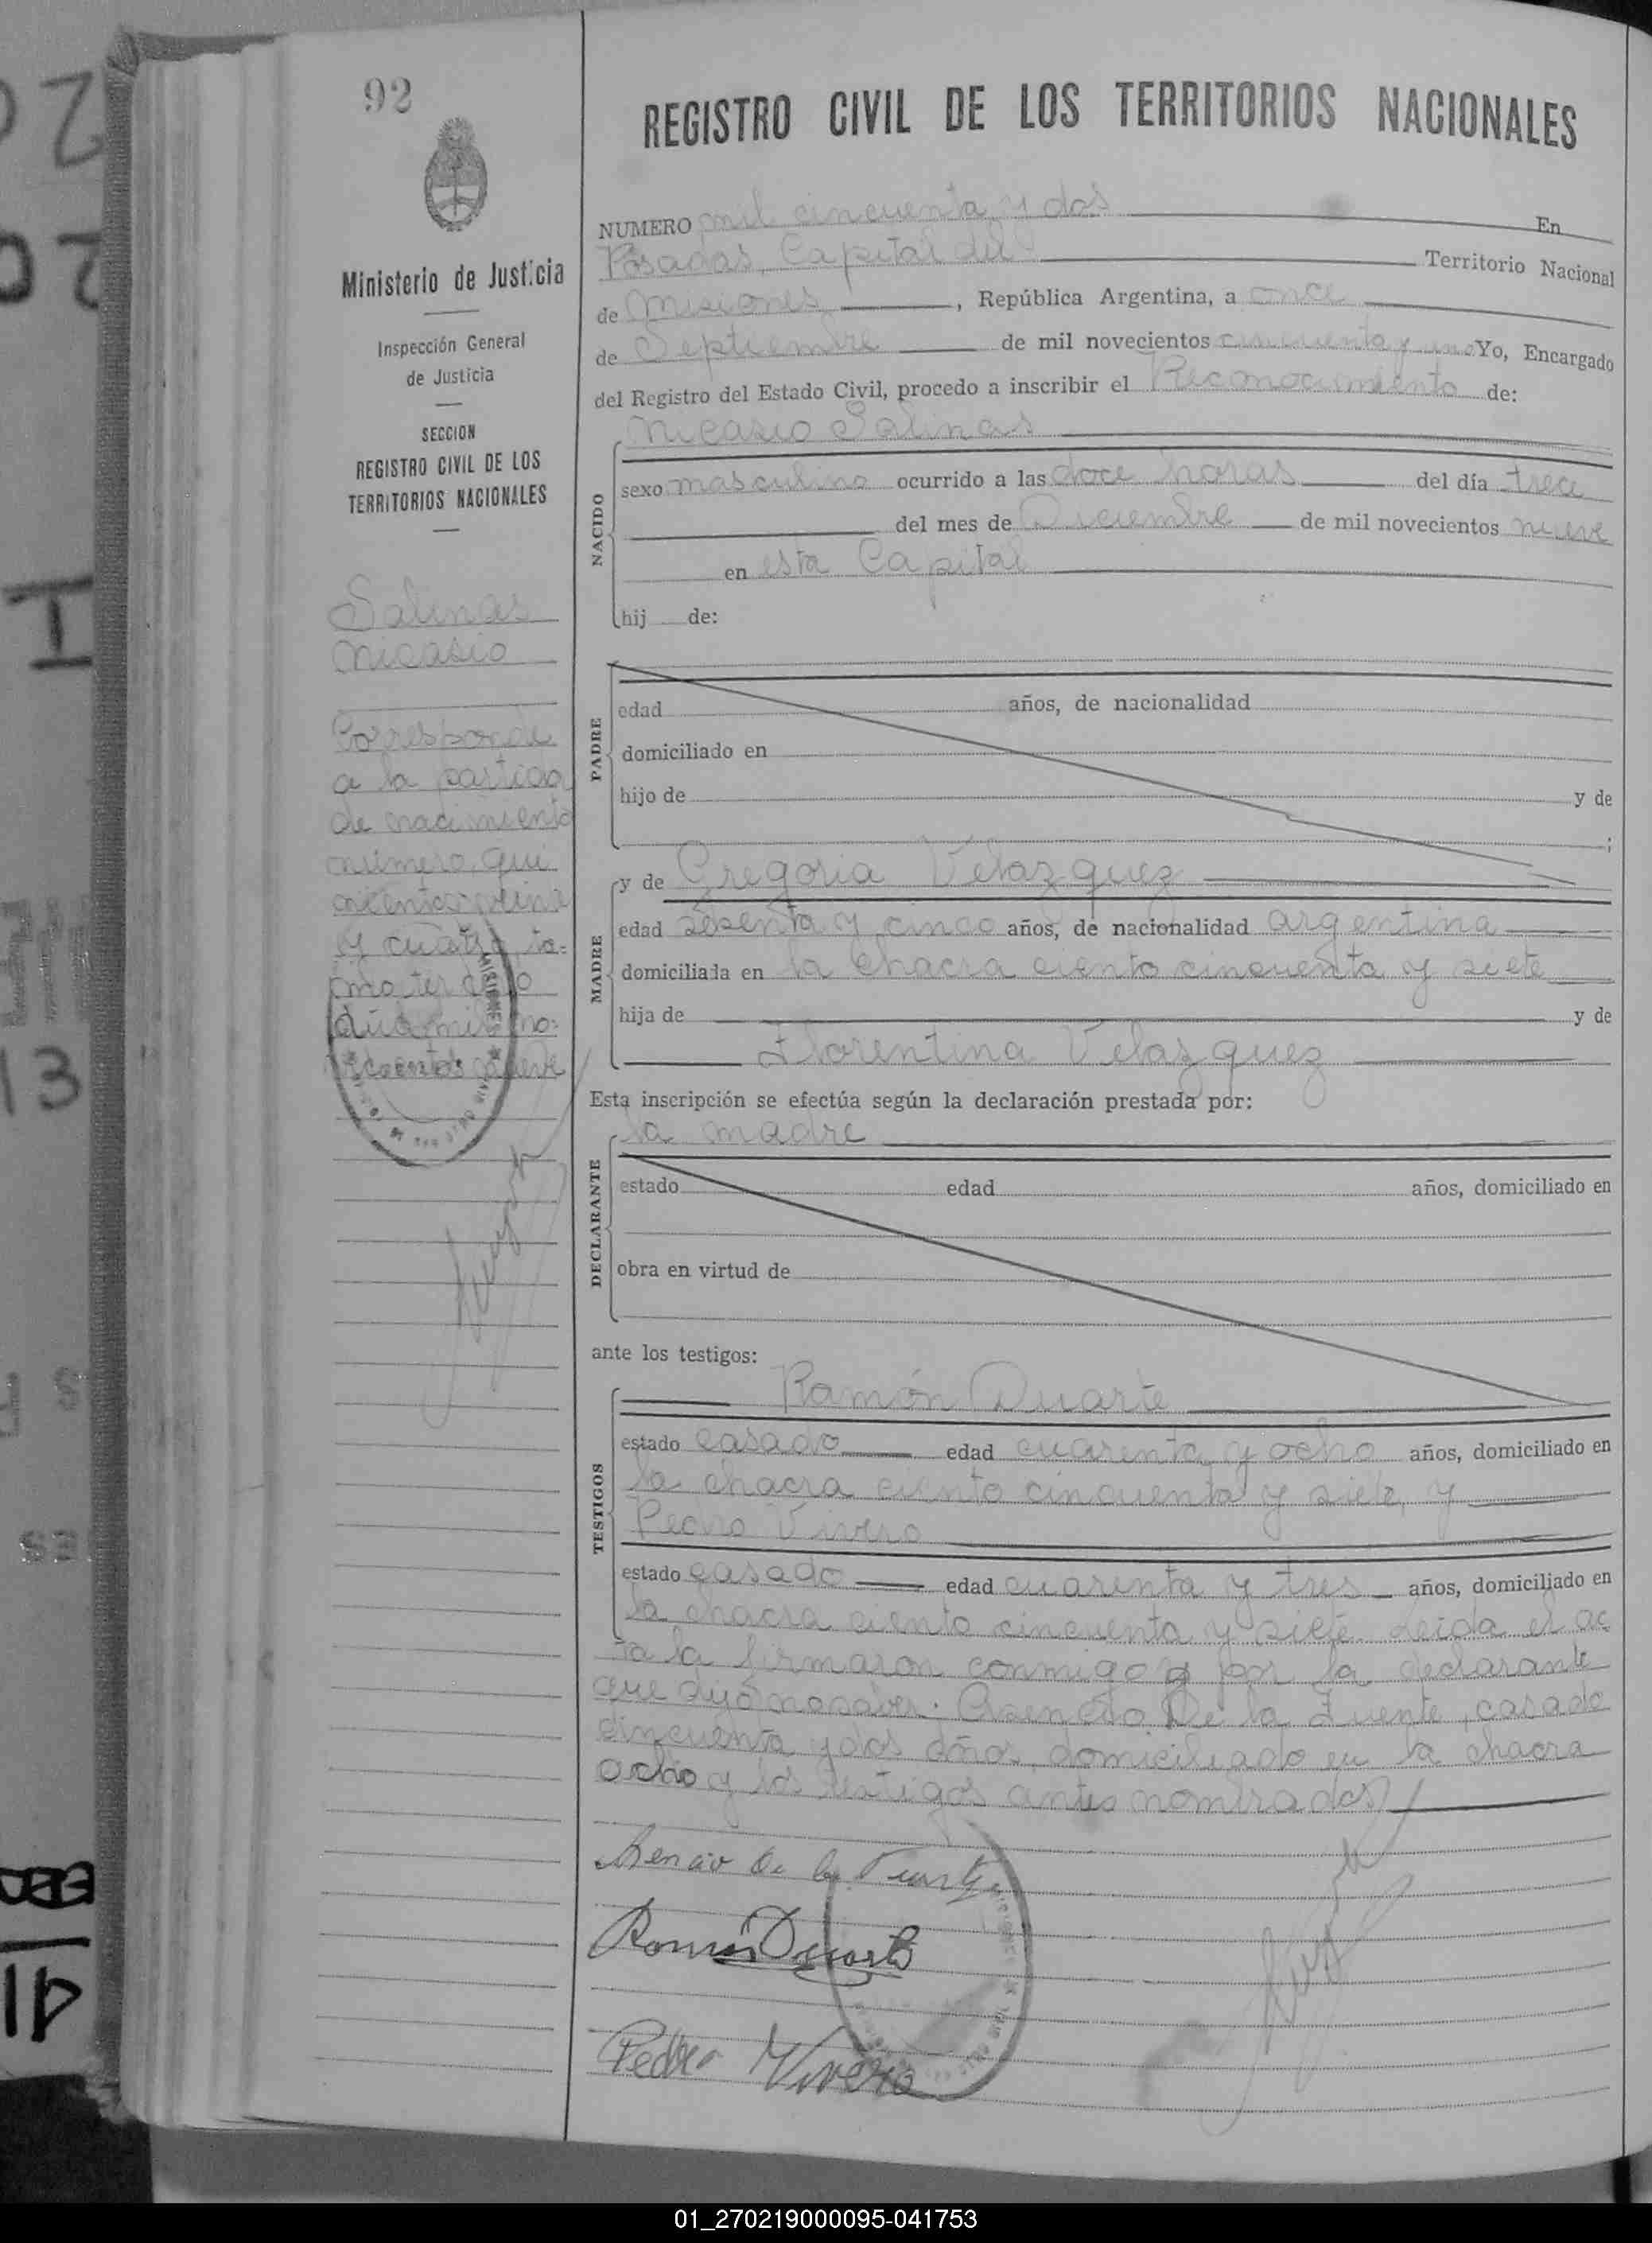 92
REGISTRO CIVIL DE LOS TERRITORIOS NACIONALES
Ministerio de Justicia
Inspección General
de Justicia
SECCION
REGISTRO CIVIL DE LOS
TERRITORIOS NACIONALES
Salinas
Nicasio
Corresponde
a la partida
de nacimiento
número qui
y cuatro, to=
mo
mil no=
vecientos nueve
NUMERO mil cincuenta y dos En
Posadas, Capital del Territorio Nacional
de Misiones, República Argentina, a once
de Septiembre de mil novecientos cincuenta y uno Yo, Encargado
del Registro del Estado Civil, procedo a inscribir el Reconocimiento de:
Nicasio Salinas
NACIDO
sexo masculino ocurrido a las doce horas del día trece
del mes de Diciembre de mil novecientos nueve
en esta Capital
hij de:
PADRE
edad años, de nacionalidad
domiciliado en
hijo de y de
;
MADRE
y de Gregoria Velazquez
edad sesenta y cinco años, de nacionalidad argentina
domiciliada en la chacra ciento cincuenta y siete
hija de y de
Florentina Velazquez
Esta inscripción se efectúa según la declaración prestada por:
la madre
DECLARANTE
estado edad años, domiciliado en
obra en virtud de
ante los testigos:
Ramón Duarte
TESTIGOS
estado casado edad cuarenta y ocho años, domiciliado en
la chacra ciento cincuenta y siete, y
Pedro Vivero
estado casado edad cuarenta y tres años, domiciliado en
la chacra ciento cincuenta y siete. Leida el ac
ta la firmaron conmigo y por la declarante
que dijo no saber: Asencio De la Fuente, casado
cincuenta y dos años, domiciliado en la chacra
ocho y los testigos antes nombrados
Asencio De la Fuente
Ramón Duarte
Pedro Vivero
01_270219000095-041753